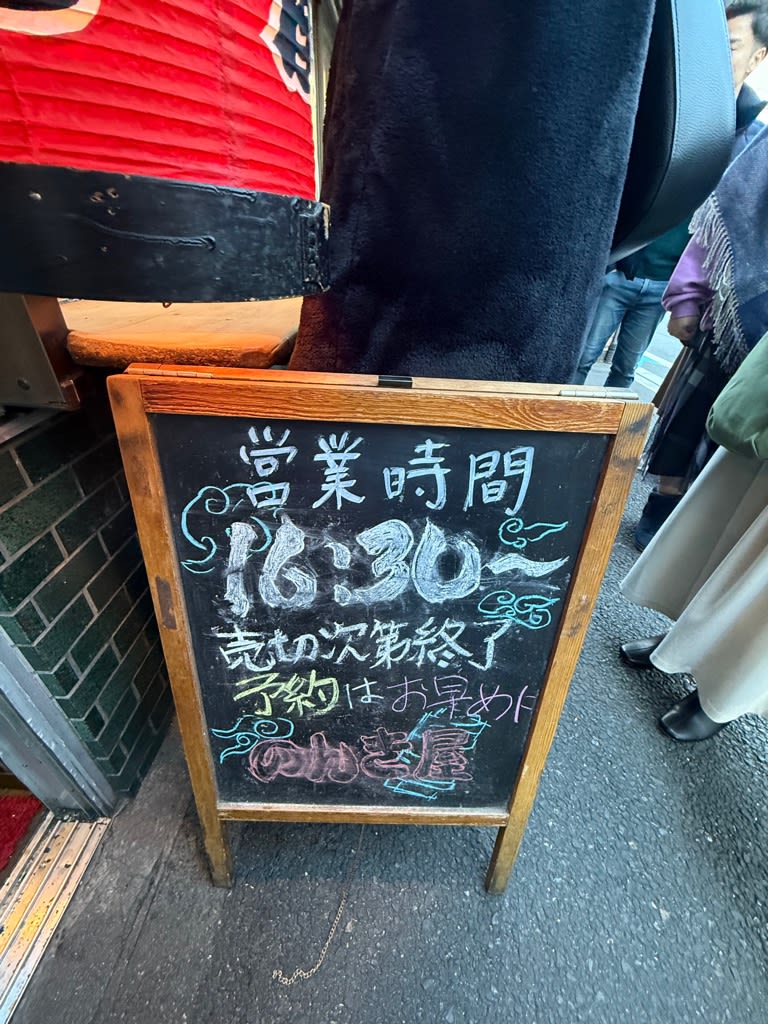 営業時間
16:30～
売切次第終了
予約はお早めに
のんき屋